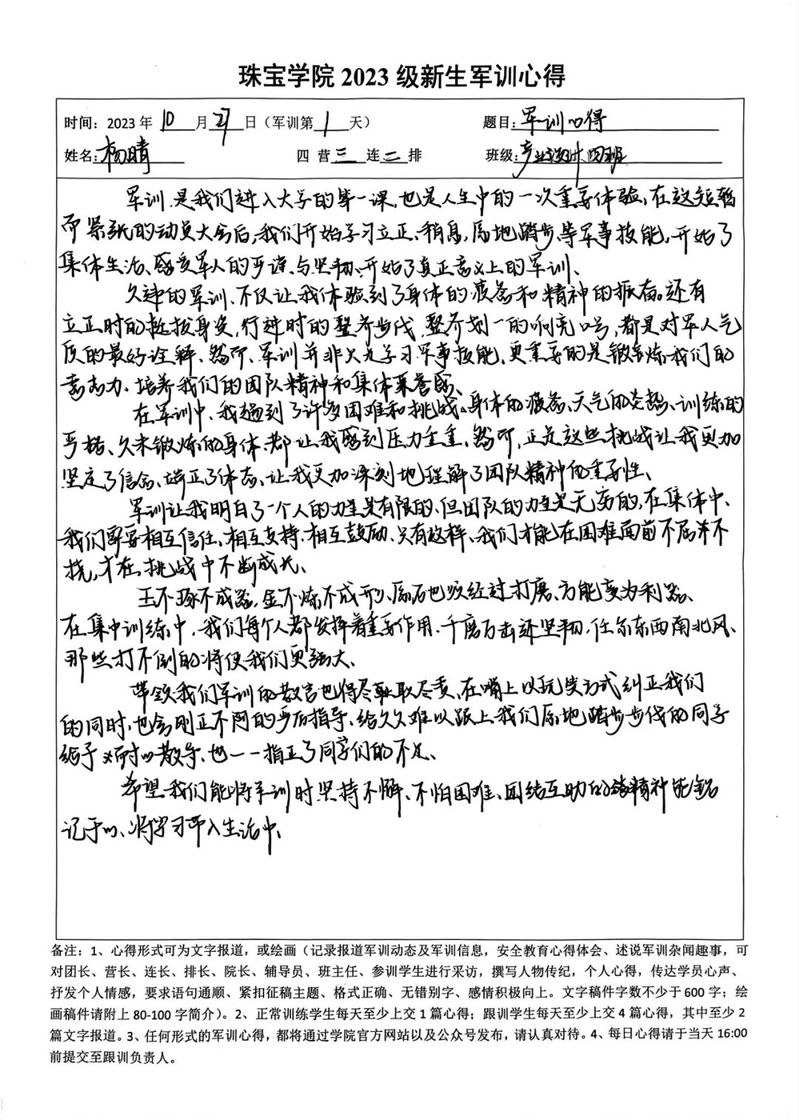 珠宝学院 2023 级新生军训心得
时间：2023 年 10 月 27 日（军训第 1 天） 题目：军训心得
姓名：杨晴 四 营 三 连 二 排 班级：产业设计四班
军训,是我们进入大学的第一课,也是人生中的一次重要体验、在这短暂
而紧张的动员大会后,我们开始学习立正、稍息、原地踏步等军事技能,开始了
集体生活、感受军人的严谨、与坚韧、开始了真正意义上的军训、
久违的军训、不仅让我体验到了身体的疲惫和精神的振奋、还有
立正时的挺拔身姿,行进时的整齐步伐、整齐划一的响亮口号,都是对军人气
质的最好诠释、军训并非只是学习军事技能、更重要的是锻炼我们的
意志力、培养我们的团队精神和集体荣誉感、
在军训中、我遇到了许多困难和挑战、身体的疲惫、天气的炎热、训练的
严格、久未锻炼的身体、都让我感到压力全重、正是这些挑战让我更加
坚定了信念、端正了体态、让我更加深刻地理解了团队精神的重要性、
军训让我明白了一个人的力量是有限的、但团队的力量是无穷的,在集体中、
我们需要相互信任、相互支持、相互鼓励、只有这样、我们才能在困难面前不屈不
挠,才在挑战中不断成长、
玉不琢不成器,金不炼不成形、原石也以经过打磨、方能变为利器、
在集中训练中,我们每个人都发挥着重要作用、千磨万击还坚韧,任尔东西南北风、
那些打不倒的将使我们更强大、
带领我们军训的教官也得尽职尽责、在嘴上以玩笑方式纠正我们
的同时,也会刚正不阿的严厉指导、给久久难以跟上我们原地踏步步伐的同学
给予教导、也一一指正了同学们的不足、
希望我们能将军训时坚持不懈、不怕困难、团结互助的精神能铭
记于心、将学习带入生活中、
备注：1、心得形式可为文字报道，或绘画（记录报道军训动态及军训信息，安全教育心得体会、述说军训杂闻趣事，可
对团长、营长、连长、排长、院长、辅导员、班主任、参训学生进行采访，撰写人物传纪，个人心得，传达学员心声、
抒发个人情感，要求语句通顺、紧扣征稿主题、格式正确、无错别字、感情积极向上。文字稿件字数不少于 600 字；绘
画稿件请附上 80-100 字简介）。2、正常训练学生每天至少上交 1 篇心得；跟训学生每天至少上交 4 篇心得，其中至少 2
篇文字报道。3、任何形式的军训心得，都将通过学院官方网站以及公众号发布，请认真对待。4、每日心得请于当天 16:00
前提交至跟训负责人。